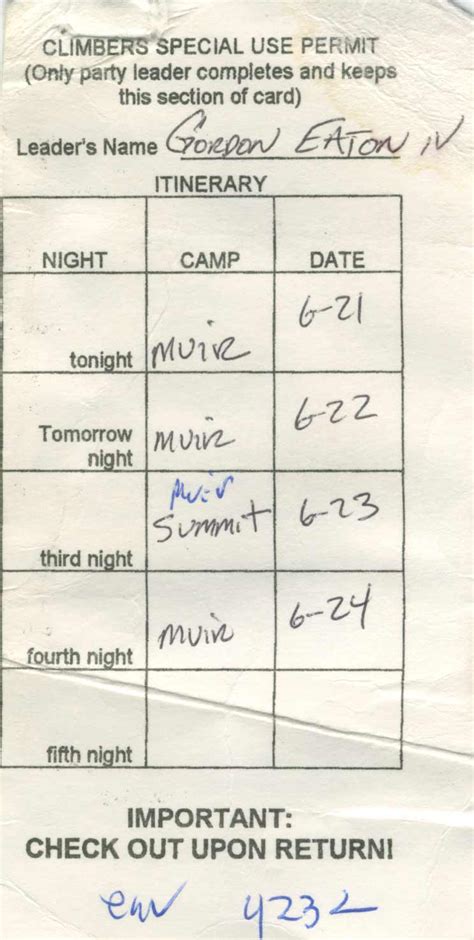 CLIMBERS SPECIAL USE PERMIT
(Only party leader completes and keeps
this section of card)
Leader's Name GORDON EATON IV
ITINERARY
NIGHT CAMP DATE
tonight MUIR 6-21
Tomorrow night MUIR 6-22
Muir
third night Summit 6-23
fourth night MUIR 6-24
fifth night
IMPORTANT:
CHECK OUT UPON RETURN!
4232